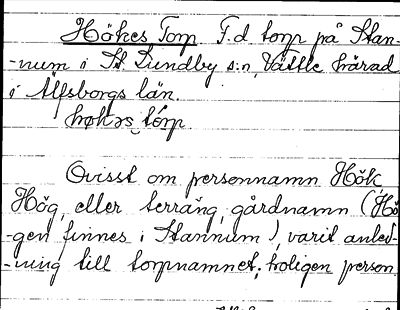 Hökes Torp F.d torp på Stan-
-num i St Lundby s:n, Vättle härad
i Älfsborgs län.
hökəs tórp
Ovisst om personnamn Hök,
Hög, eller terräng, gårdnamn (Hö
-gen finnes i Stannum), varit anled-
-ning till torpnamnet; troligen person